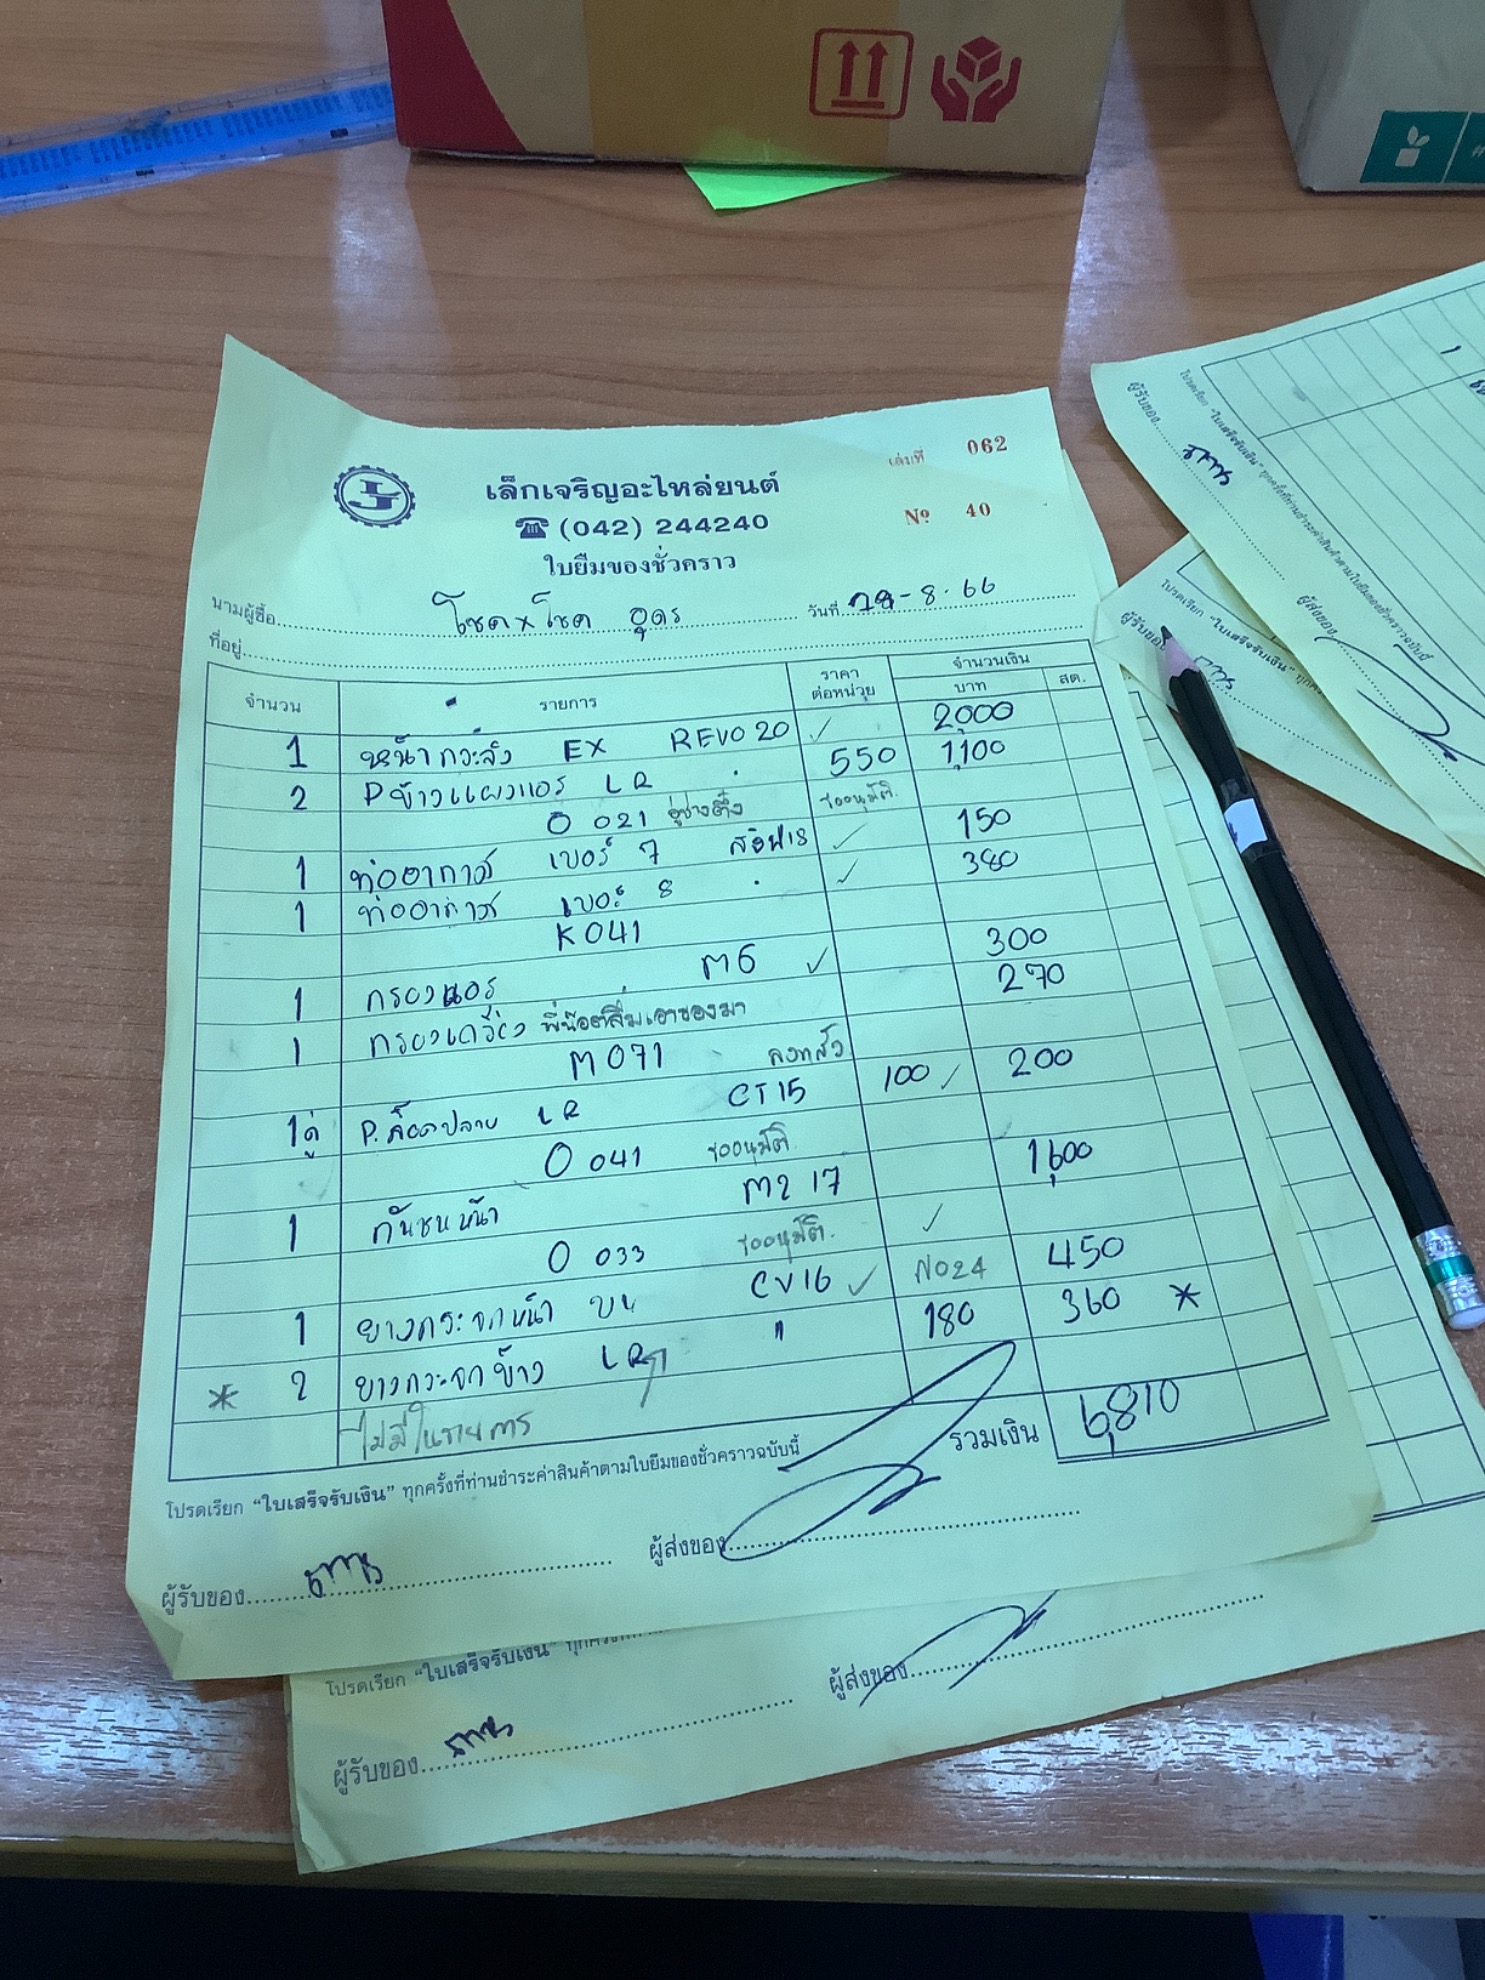 เล่มที่ 062
เล็กเจริญอะไหล่ยนต์
☎ (042) 244240
Nº 40
ใบยืมของชั่วคราว
นามผู้ซื้อ โชค x โชค อุดร วันที่ 28-8-66
ที่อยู่
จำนวน รายการ ราคาต่อหน่วย จำนวนเงิน
บาท สต.
1 หน้ากระจัง EX REVO 20 ✓ 2,000
2 P ข้างแผงแอร์ LR 550 1,100
O 021 อู่ช่างตึ๋ง รออนุมัติ.
1 ท่ออากาศ เบอร์ 7 ✓ 150
1 ท่ออากาศ เบอร์ 8 ✓ 380
K041
1 กรองแอร์ M6 ✓ 300
1 กรองเครื่อง พี่น๊อตลืมเอาของมา 270
M071 ลงหลัง
1คู่ P. ล๊อคปลาย LR CT15 100 ✓ 200
O 041 รออนุมัติ.
1 กันชนหน้า M2 17 1,600
O 033 รออนุมัติ. ✓
1 ยางกระจกหน้า บน CV16 ✓ N024 450
* 2 ยางกระจกข้าง LR " 180 360 *
ไม่มีในรายการ
รวมเงิน 6,810
โปรดเรียก "ใบเสร็จรับเงิน" ทุกครั้งที่ท่านชำระค่าสินค้าตามใบยืมของชั่วคราวฉบับนี้
ผู้รับของ ผู้ส่งของ
โปรดเรียก "ใบเสร็จรับเงิน"
ผู้รับของ ผู้ส่งของ
โปรดเรียก "ใบเสร็จรับเงิน" ทุกครั้งที่ท่านชำระค่าสินค้าตามใบยืมของชั่วคราวฉบับนี้
ผู้รับของ ผู้ส่งของ
โปรดเรียก "ใบเสร็จรับเงิน"
ผู้รับของ